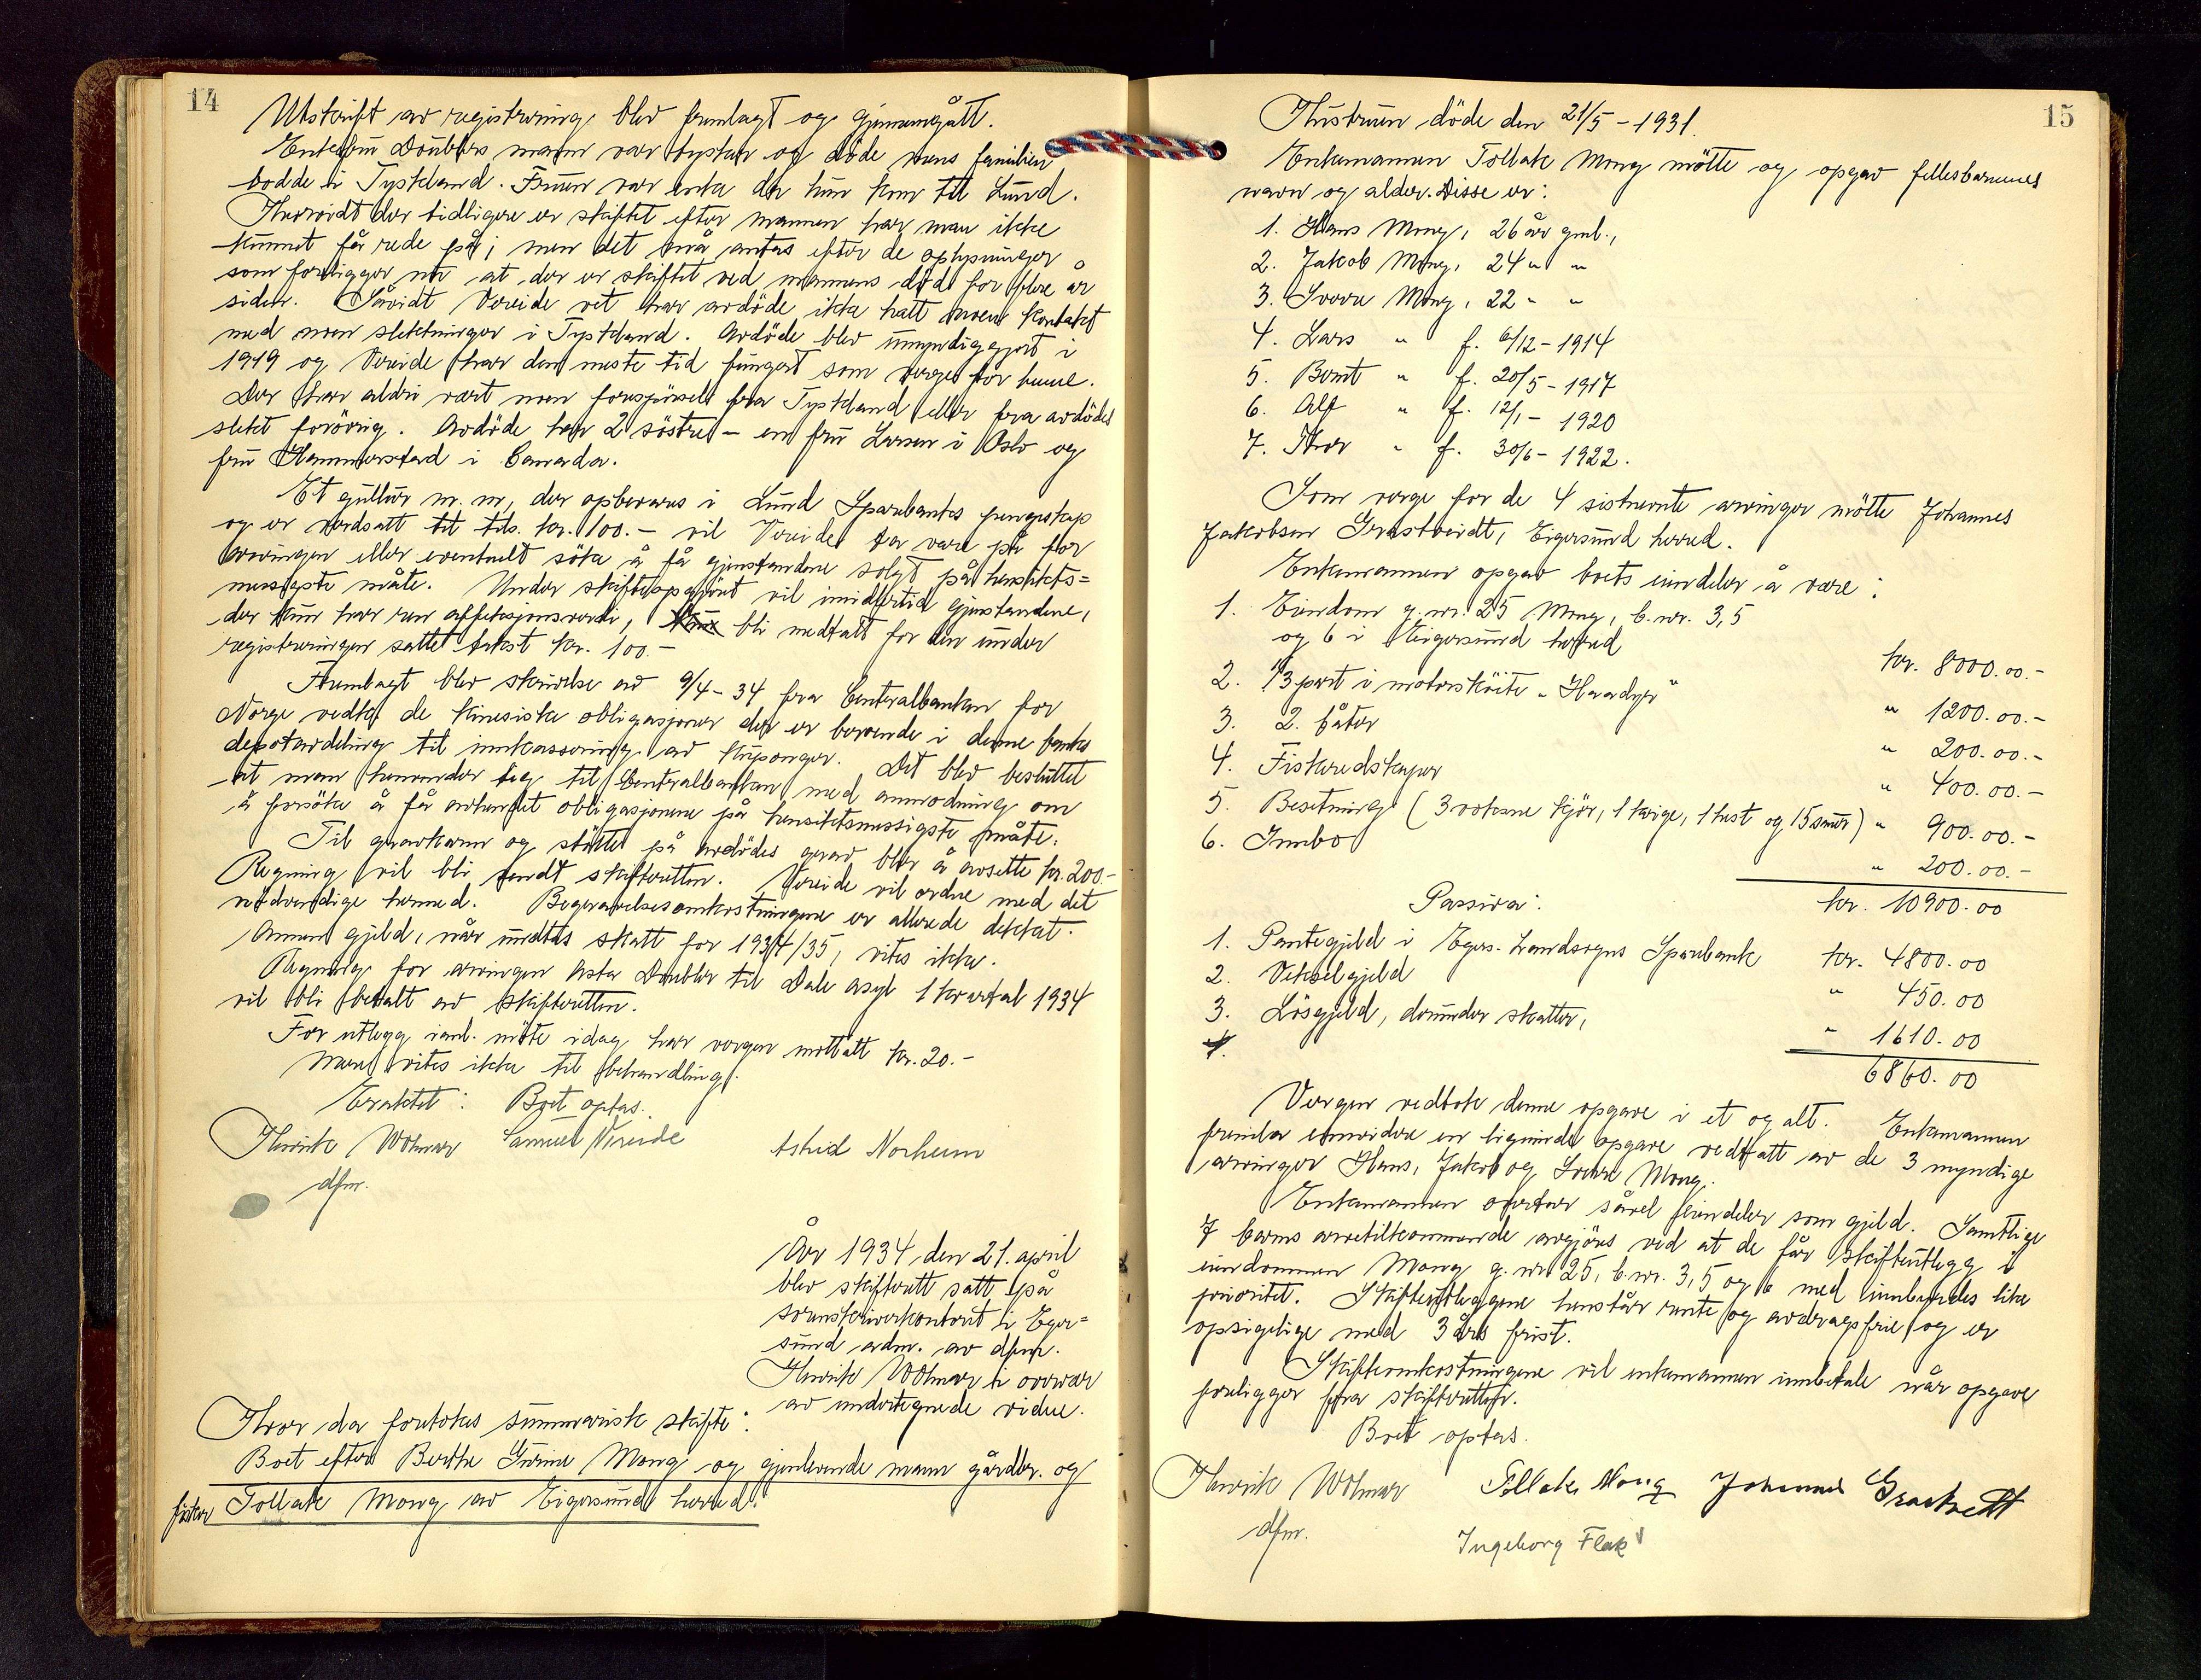 14
Utskrift av registrering blev fremlagt og gjennemgått.
Enkefru Doublers mann var tysker og døde mens familien
bodde i Tyskland. Fruen var enke da hun kom til Lund.
Hvorvidt der tidligere er skiftet efter mannen har man ikke
kunnet få rede på; men det må antas efter de oplysninger
som foreligger nu at der er skiftet ved mannens død for flere år
siden. Såvidt Vereide vet har avdøde ikke hatt noen kontakt
med noen slektninger i Tyskland. Avdøde blev umyndiggjort i
1919 og Vereide har den meste tid fungert som verge for henne.
Der har aldri vært noen forespørsel fra Tyskland eller fra avdødes
slekt forøvrig. Avdøde har 2 søstre - en fru Larsen i Oslo og
fru Hammerstad i Canada.
Et gullur m. m, der opbevares i Lund Sparebanks pengeskap
og er verdsatt til tils. kr. 100.- vil Vereide ta vare på for
arvingen eller eventuelt søke å få gjenstandene solgt på hensikts=
messigste måte. Under skifteopgjøret vil imidlertid gjenstandene,
der kun har ren affeksjonsverdi, bli medtatt for den under
registreringen satte takst kr. 100.-
Fremlagt blev skrivelse av 9/4-34 fra Centralbanken for
Norge vedk. de kinesiske obligasjoner der er beroende i denne banks
depotavdeling til innkassering av kuponger. Det blev besluttet
at man henvender seg til Centralbanken med anmodning om
å forsøke å få avhendet obligasjonene på hensiktsmessigste måte.
Til gravkarm og støtte på avdødes grav blir å avsette kr. 200.-
Regning vil bli sendt skifteretten. Vereide vil ordne med det
nødvendige hermed. Begravelsesomkostningene er allerede dekket.
Annen gjeld, når undtas skatt for 1934/35, vites ikke.
Regning for arvingen Asta Doubler til Dale asyl 1 kvartal 1934
vil bli betalt av skifteretten.
For utlegg i anl. møte idag har vergen mottatt kr. 20.-
Mere vites ikke til behandling.
Eraktet: Boet optas.
Henrik Wolmar Samuel Vereide Astrid Norheim
dfm.
År 1934 den 21. april
blev skifterett satt på
sorenskriverkontoret i Eger=
sund adm. av dfm.
Henrik Wolmar i overvær
av undertegnede vidne.
Hvor da foretokes summarisk skifte:
Boet efter Berthe Gurine Mong og gjenlevende mann gårdbr. og
fisker Tollak Mong av Eigersund herred.
15
Hustruen døde den 21/5-1931.
Enkemannen Tollak Mong møtte og opgav fellesbarnenes
navn og alder. Disse er:
1. Hans Mong, 26 år gml.,
2. Jakob Mong, 24 " "
3. Sverre Mong, 22 " "
4. Lars " f. 6/12-1914
5. Bernt " f. 20/5-1917
6. Alf " f. 12/1-1920
7. Thor " f. 30/6-1922.
Som verge for de 4 sistnevnte arvinger møtte Johannes
Jakobsen Grastveidt, Eigersund herred.
Enkemannen opgav boets eiendeler å være:
1. Eiendom g.nr. 25 Mong, b.nr. 3,5
og 6 i Eigersund herred kr. 8000.00.-
2. 1/3 part i motorskøite "Havdyr" " 1200.00.-
3. 2. båter " 200.00.-
4. Fiskeredskaper " 400.00.-
5. Besetning (3 voksne kjør, 1 kvige, 1 hest og 15 smår) " 900.00.-
6. Innbo " 200.00.-
kr. 10900.00
Passiva:
1. Pantegjeld i Egers. Landsogns Sparebank kr. 4800.00
2. Vekselgjeld " 450.00
3. Løsgjeld, derunder skatter, " 1610.00
4.
6860.00
Vergen vedtok denne opgave i et og alt. Enkemannen
fremla envidere en lignende opgave vedtatt av de 3 myndige
arvinger Hans, Jakob og Sverre Mong.
Enkemannen overtar såvel eiendeler som gjeld. Samtlige
7 barns arvetilkommende avgjøres ved at de får skifteutlegg i
eiendommen Mong g.nr. 25, b.nr. 3,5 og 6 med innbyrdes like
prioritet. Skifteutleggene henstår rente og avdragsfrie og er
opsigelige med 3 års frist.
Skifteomkostningene vil enkemannen innbetale når opgave
foreligger fra skifteretten.
Boet optas.
Henrik Wolmar Tollak Mong Johannes Grastveit
dfm.
Ingeborg Flak